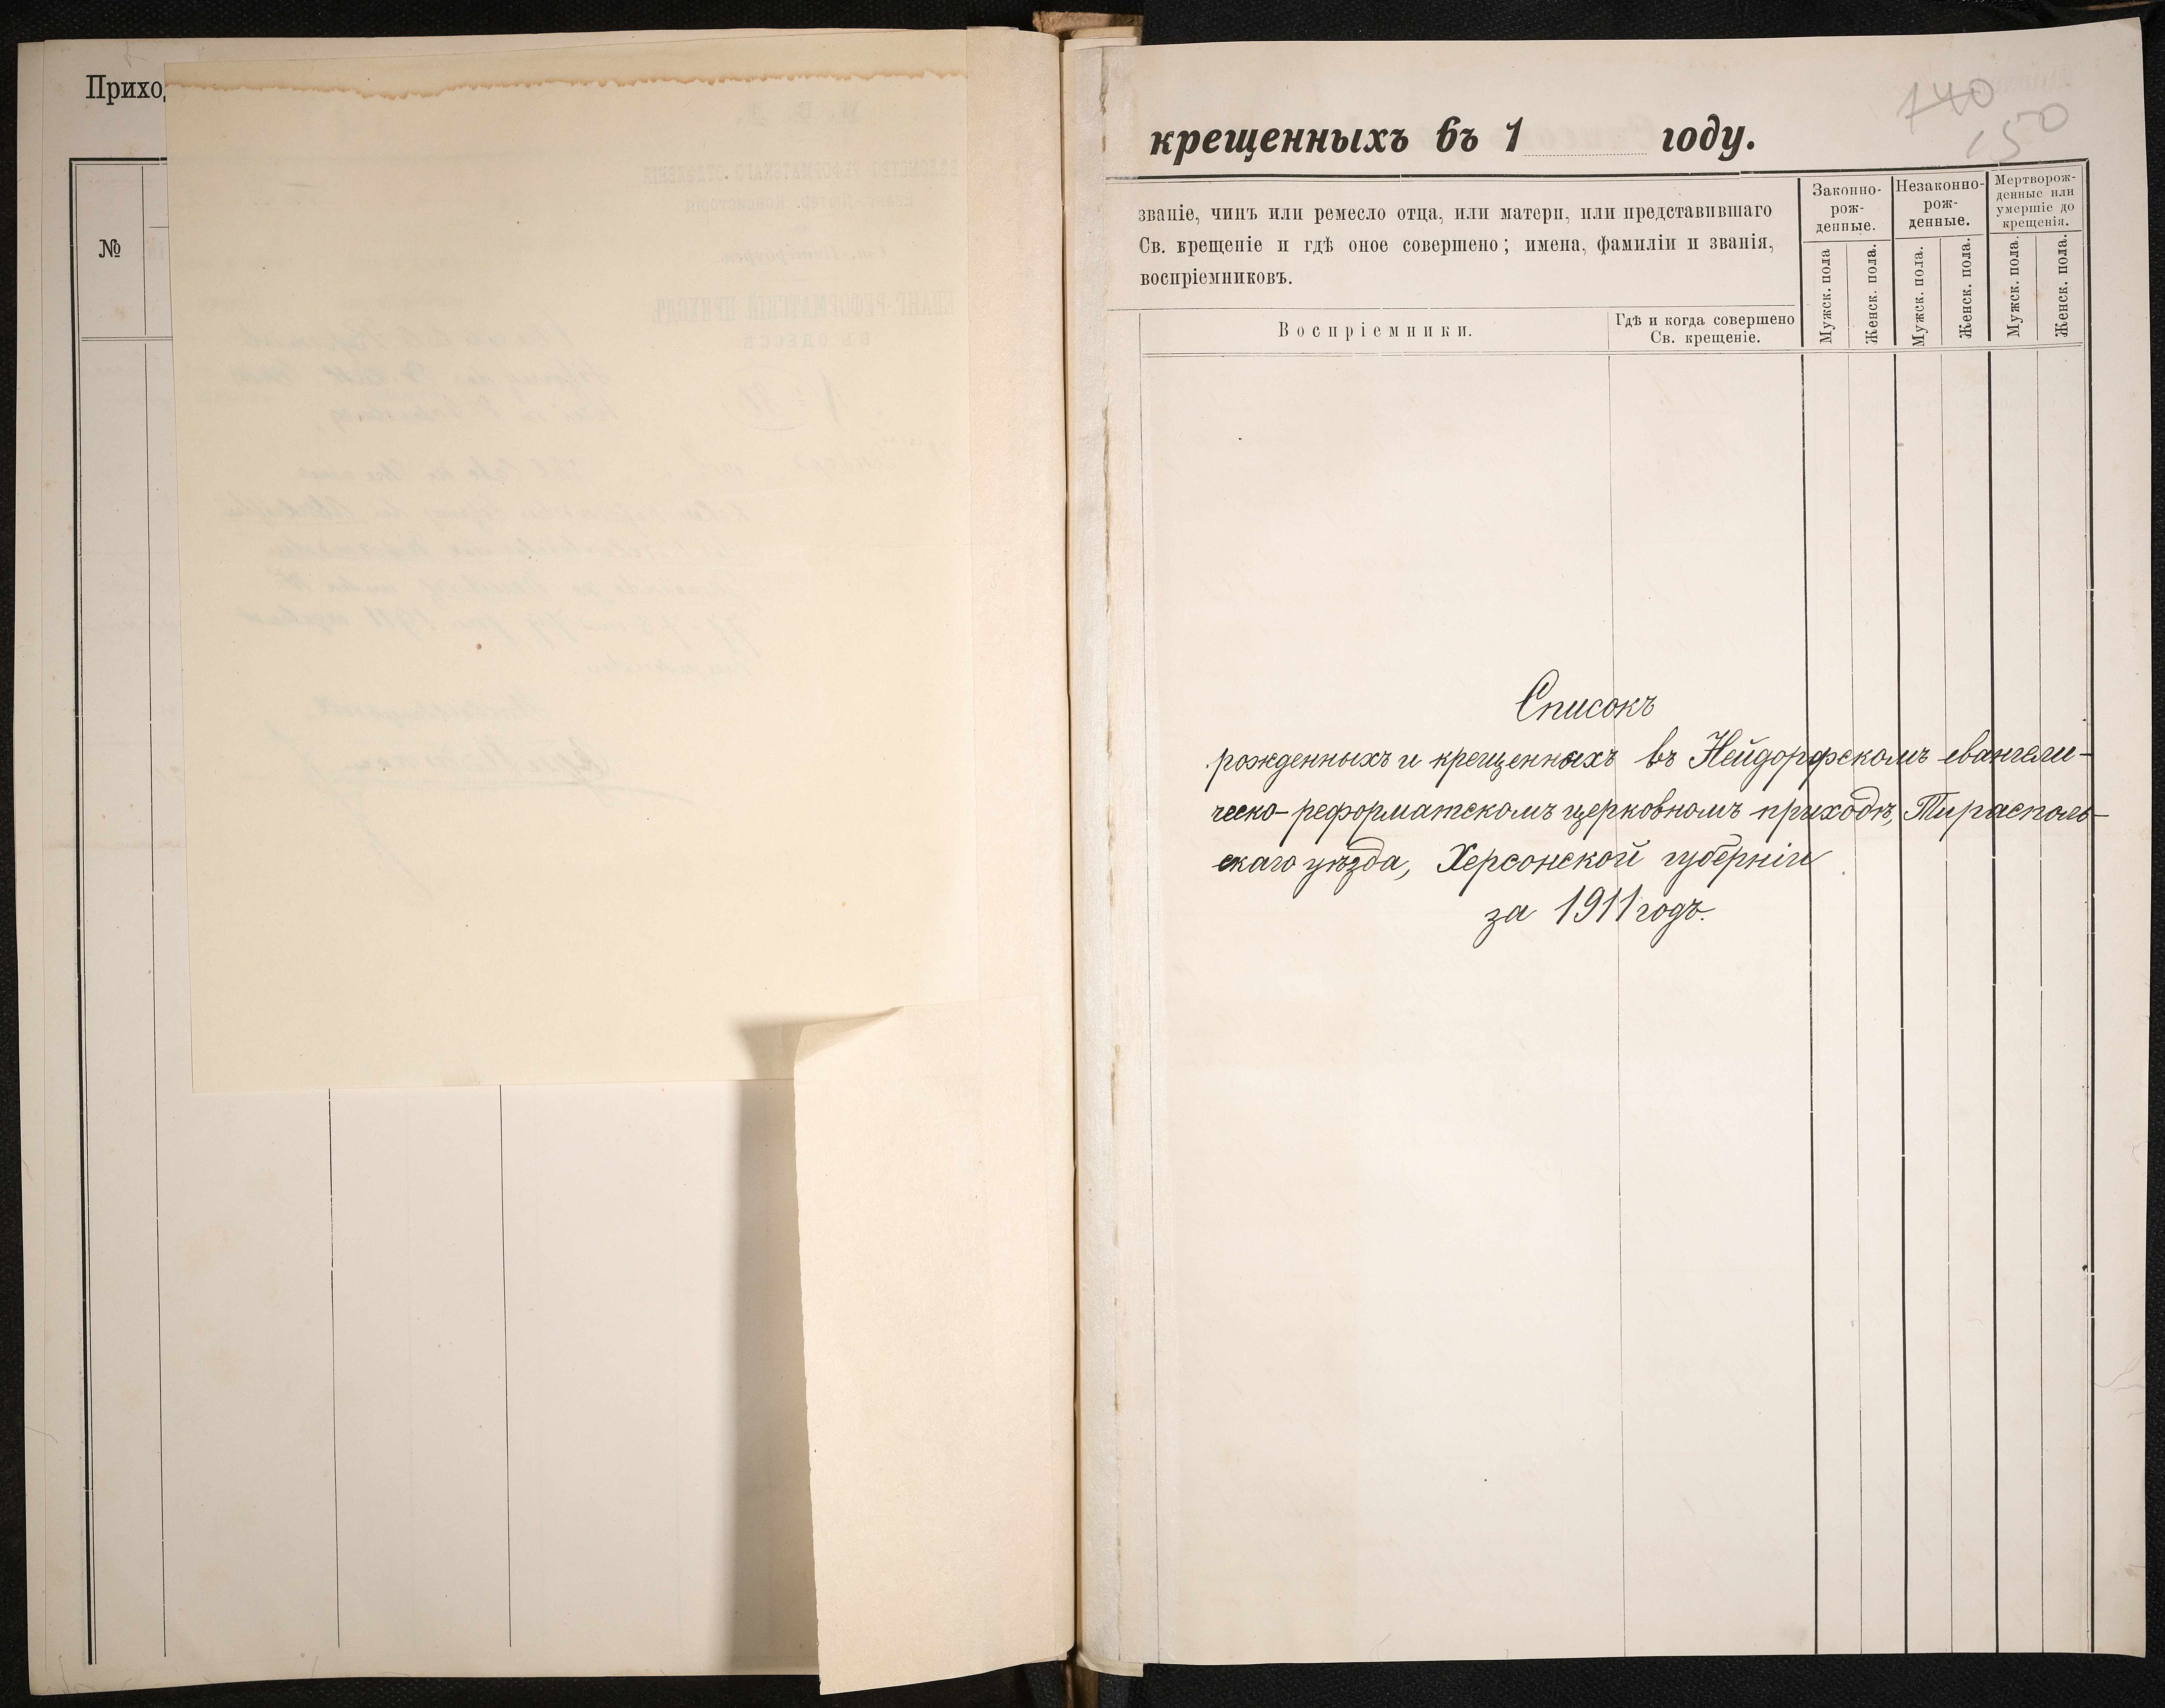 Прихо
№
140
150
крещенныхъ въ 1 году.
званіе, чинъ или ремесло отца, или матери, или представившаго
Св. крещеніе и гдѣ оное совершено; имена, фамиліи и званія,
воспріемниковъ.
Воспріемники.
Гдѣ и когда совершено
Св. крещеніе.
Законно-
рож-
денные.
Незаконно-
рож-
денные.
Мертворож-
денные или
умершіе до
крещенія.
Мужск. пола
Женск. пола.
Мужск. пола.
Женск. пола.
Мужск. пола.
Женск. пола.
Списокъ
рожденныхъ и крещенныхъ въ Нейдорфскомъ евангели-
ческо-реформатскомъ церковномъ приходѣ, Тирасполь-
скаго уѣзда, Херсонской губерніи
за 1911 годъ.